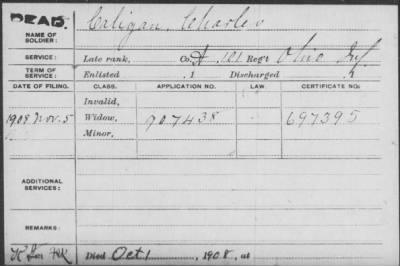 DEAD.
NAME OF SOLDIER: Caligan, Charles
SERVICE: Late rank, Co. A 121 Reg't Ohio Inf.
TERM OF SERVICE: Enlisted , 1 Discharged , 1
DATE OF FILING. CLASS. APPLICATION NO. LAW. CERTIFICATE NO.
Invalid,
1908 Nov. 5 Widow, 907438 697395
Minor,
ADDITIONAL SERVICES:
REMARKS:
Died Oct 1, 1908, at